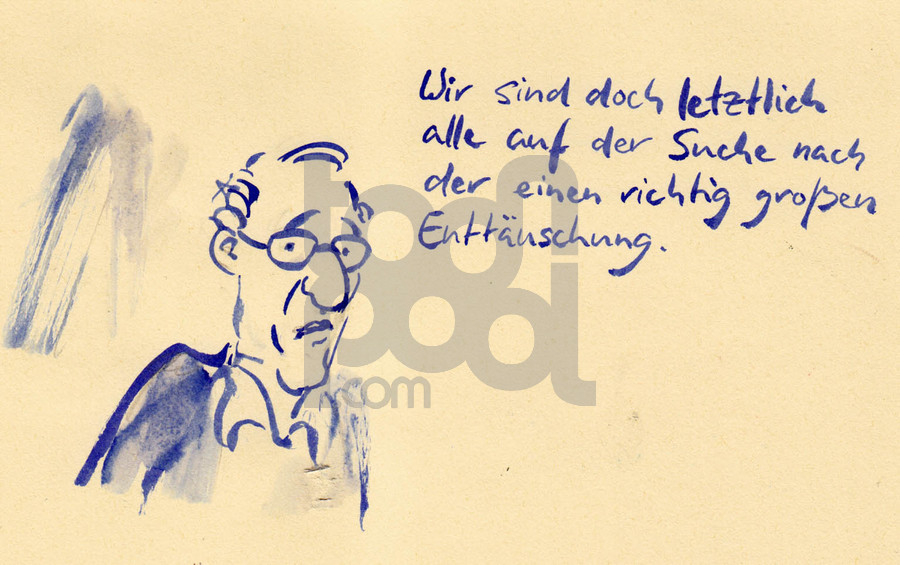 Wir sind doch letztlich
alle auf der Suche nach
der einen richtig großen
Enttäuschung.
toon
pool
.com